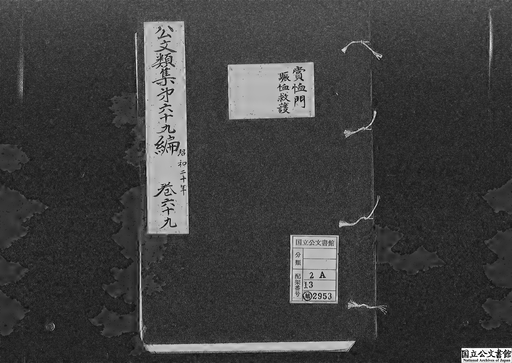 公文類集第六十九編
昭和二十年
巻六十九
賞恤門
賑恤救護
国立公文書館
分類
配架番号
2A
13
類2953
国立公文書館
National Archives of Japan